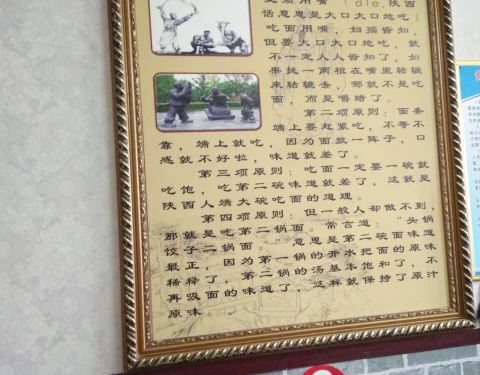 须用嘴（die，陕西
话意思是大口大口地吃）
吃面用嘴，妇孺皆知，
但要大口大口地吃，就
不一定人人皆知了，如
果挑一两根在嘴里轱辘
来轱辘去，哪就不是吃
面，而是嚼蜡了。
第二项原则：面条
端上要赶紧吃，不等不
靠，端上就吃，因为面放一阵子，口
感就不好啦，味道就差了。
第三项原则：吃面一定要一碗就
吃饱，吃第二碗味道就差了，这就是
陕西人端大碗吃面的道理。
第四项原则：但一般人却做不到，
那就是吃第二锅面。常言道：“头锅
饺子二锅面。”意思是第二碗面味道
最正，因为第一锅的开水把面的原味
稀释了，第二锅的汤基本饱和了，不
再吸面的味道了，这样就保持了原汁
原味。